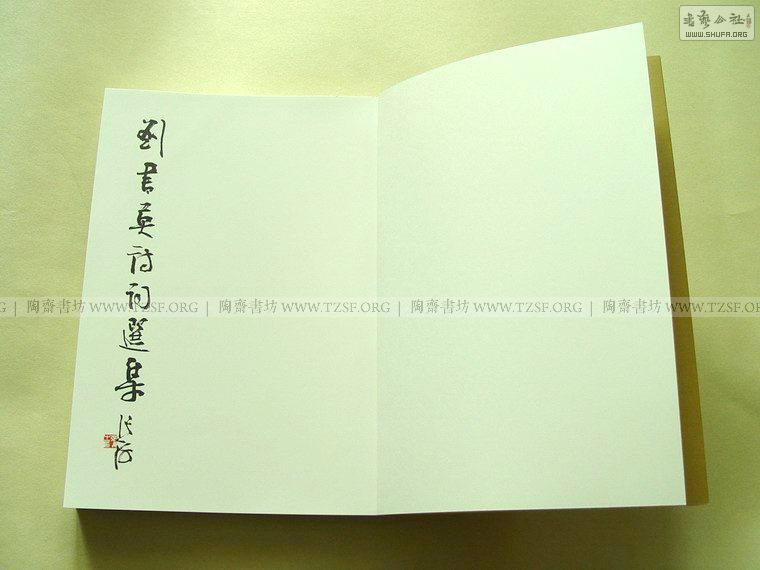 書藝公社
WWW.SHUFA.ORG
劉書英詩詞選集
G | 陶齋書坊 WWW.TZSF.ORG | 陶齋書坊 WWW.TZSF.ORG | 陶齋書坊 WWW.TZSF.ORG | 陶齋書坊 WWW.TZSF.ORG